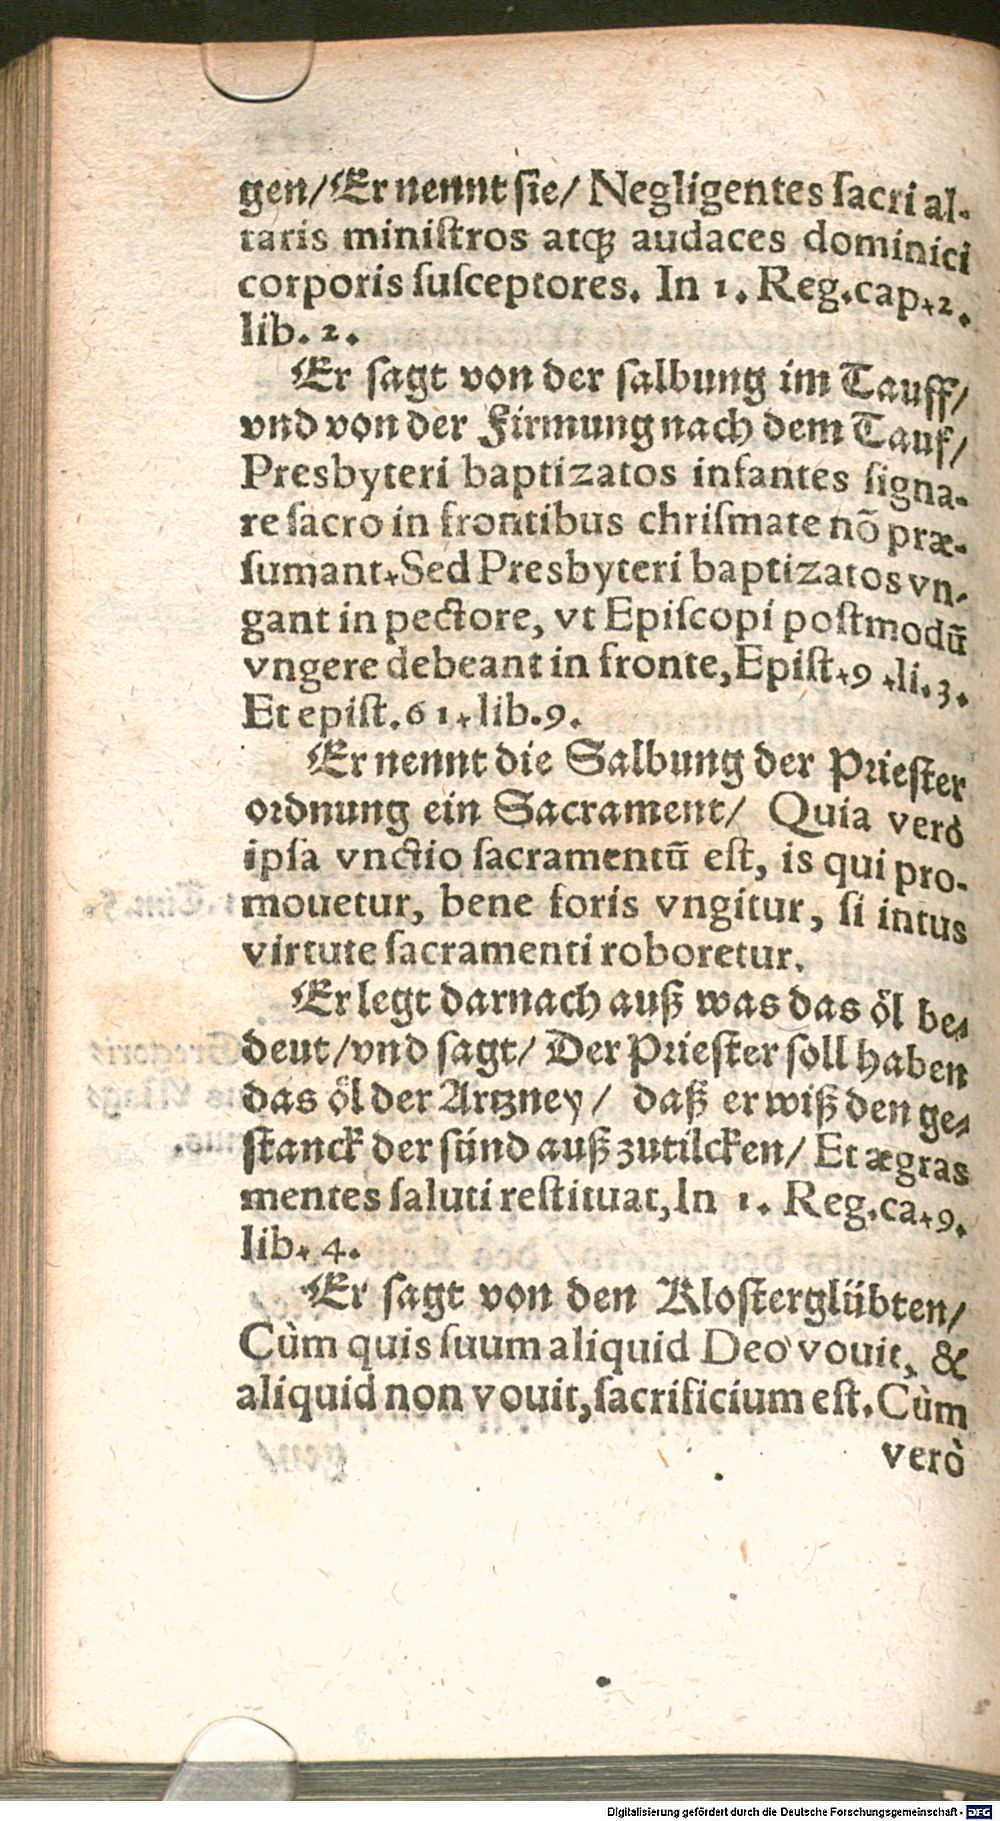 gen/ Er nennt sie/ Negligentes ſacri al-
taris miniſtros atq́; audaces dominici
corporis ſuſceptores. In 1. Reg. cap. 2.
lib. 2.
Er ſagt von der ſalbung im Tauff/
vnd von der Firmung nach dem Tauf/
Presbyteri baptizatos infantes ſigna-
re ſacro in frontibus chriſmate nõ præ-
ſumant. Sed Presbyteri baptizatos vn-
gant in pectore, vt Epiſcopi poſtmodũ
vngere debeant in fronte, Epiſt. 9. li. 3.
Et epiſt. 61. lib. 9.
Er nennt die Salbung der Prieſter
ordnung ein Sacrament/ Quia verò
ipſa vnctio ſacramentũ eſt, is qui pro-
mouetur, bene foris vngitur, ſi intus
virtute ſacramenti roboretur.
Er legt darnach auß was das öl be-
deut/ vnd ſagt/ Der Prieſter ſoll haben
das öl der Artzney/ daß er wiß den ge-
ſtanck der ſünd auß zutilcken/ Et ægras
mentes ſaluti reſtituat, In 1. Reg. ca. 9.
lib. 4.
Er ſagt von den Kloſterglübten/
Cùm quis ſuum aliquid Deo vouit, &
aliquid non vouit, ſacrificium eſt. Cùm
verò
Digitalisierung gefördert durch die Deutsche Forschungsgemeinschaft - DFG